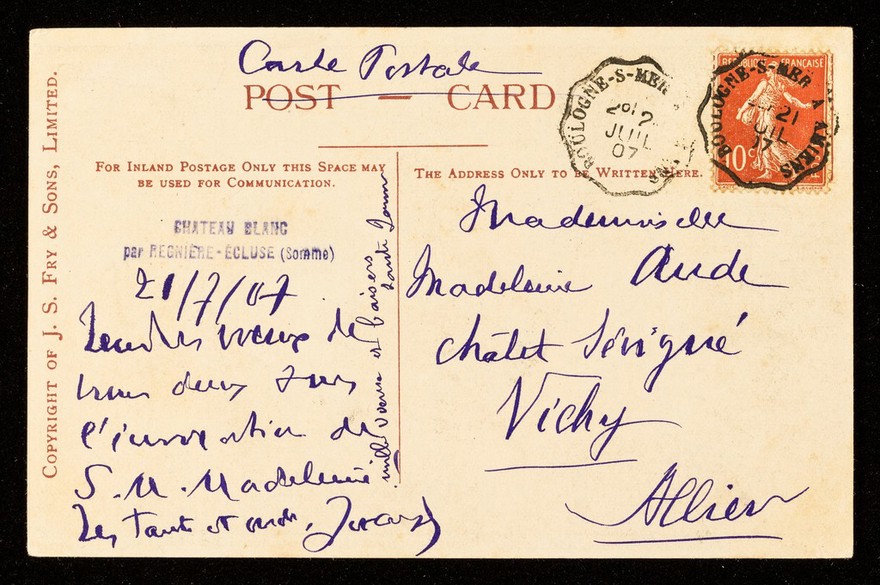 Carte Postale
POST — CARD
COPYRIGHT OF J. S. FRY & SONS, LIMITED.
FOR INLAND POSTAGE ONLY THIS SPACE MAY
BE USED FOR COMMUNICATION.
THE ADDRESS ONLY TO BE WRITTEN HERE.
BOULOGNE-S-MER
JUIL
07
RÉPUBLIQUE FRANÇAISE
10c
BOULOGNE-S-MER A AMIENS
21
CHATEAU BLANC
par REGNIÈRE-ÉCLUSE (Somme)
21/7/07
Tendres voeux de
nous deux sous
l'invocation de
S. M. Madeleine
Les tante et oncle.
mille voeux et baisers
Mademoiselle
Madeleine Aude
châlet Sévigné
Vichy
Allier